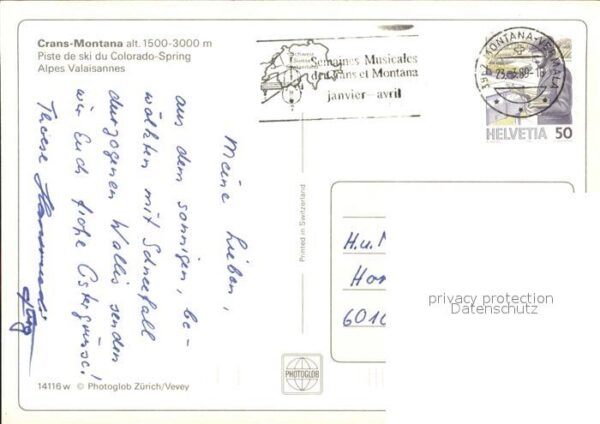 Crans-Montana alt. 1500-3000 m
Piste de ski du Colorado-Spring
Alpes Valaisannes
Semaines Musicales
de Crans et Montana
janvier—avril
HELVETIA 50
Meine Lieben,
aus dem sonnigen, be-
wölkten mit Schneefall
durzogenen Wallis senden
wir Euch frohe Ostergrüsse!
Therese
Jürg
Printed in Switzerland
H.u.
Hor
6010
privacy protection
Datenschutz
PHOTOGLOB
14116 w © Photoglob Zürich/Vevey